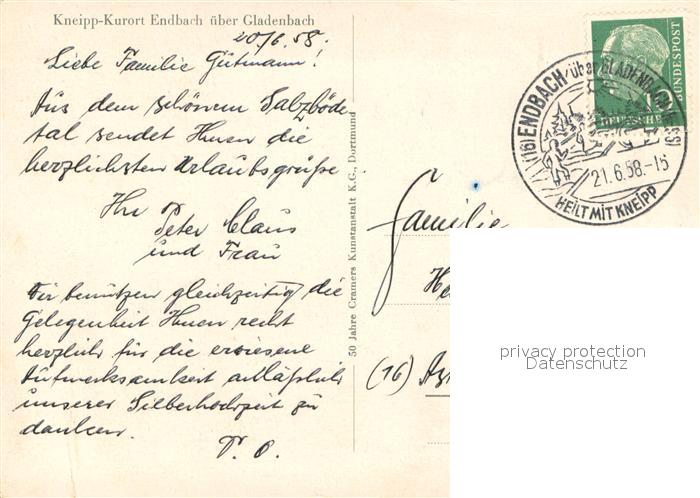 Kneipp-Kurort Endbach über Gladenbach
20/6.58.
Liebe Familie Gütmann!
Aus dem schönen Salzböde
tal sendet Ihnen die
herzlichsten Urlaubsgrüße
Ihr
Peter Claus
und Frau
Wir benützen gleichzeitig die
Gelegenheit Ihnen recht
herzlich für die erwiesene
Aufmerksamkeit anläßlich
unserer Silberhochzeit zu
danken.
P. O.
50 Jahre Cramers Kunstanstalt K.G., Dortmund
DEUTSCHE
BUNDESPOST
10
(16) ENDBACH über GLADENBACH
21.6.58.-15
HEILT MIT KNEIPP
Familie
He
(16)
privacy protection
Datenschutz